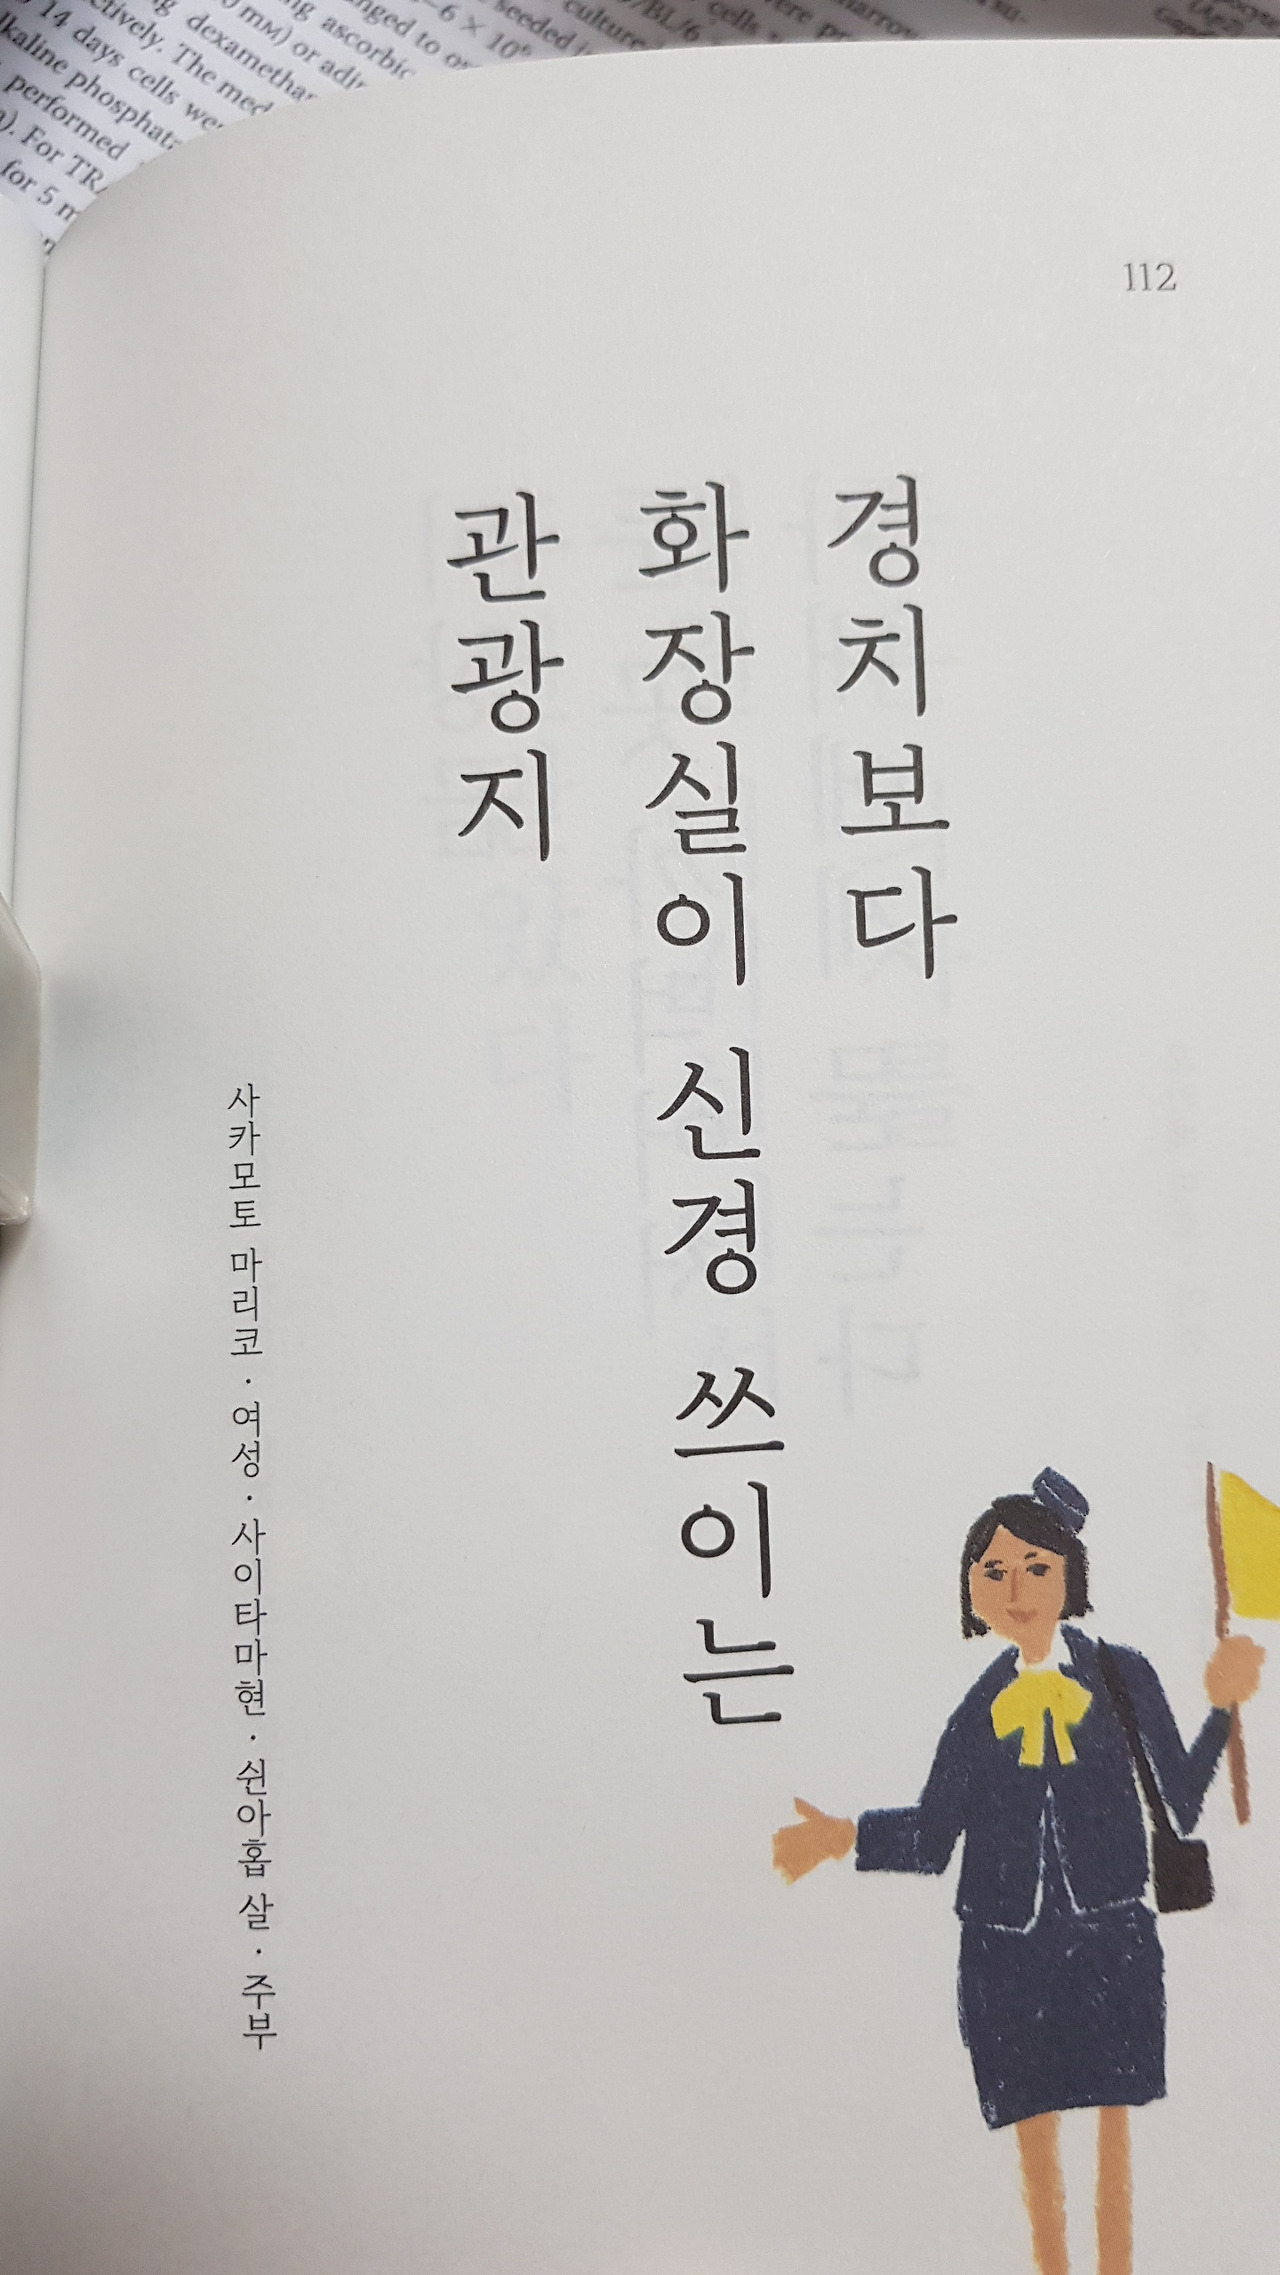 112
경치보다
화장실이 신경 쓰이는
관광지
사카모토 마리코 · 여성 · 사이타마현 · 쉰아홉 살 · 주부
14 days cells
kaline
performed
For
for 5
dexametha
ng ascorbic
nged to
6 × 10⁶
seeded
culture
cells